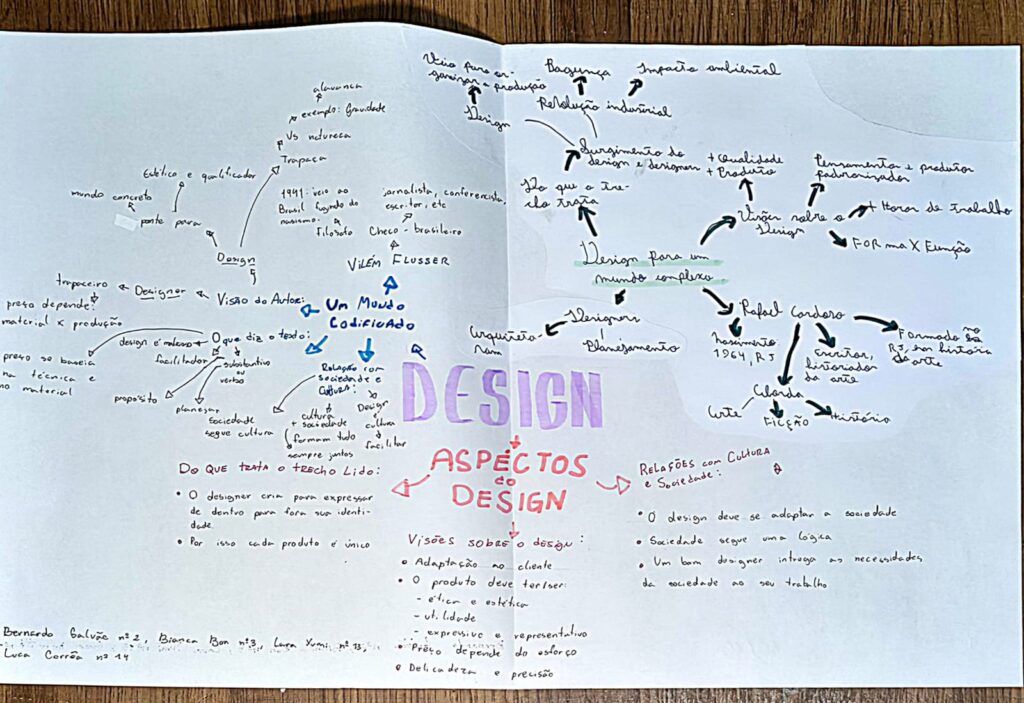 alavanca
exemplo: Gravidade
Vs natureza
Trapaça
Estético e qualificador
mundo concreto
ponte para
Design
trapaceiro
Designer
Visão do Autor:
preço depende:
material x produção
1941: veio ao
Brasil fugindo do
nasismo.
Filósofo
jornalista, conferencista,
escritor, etc
Checo-brasileiro
VILÉM FLUSSER
UM MUNDO
CODIFICADO
O que diz o texto:
design é
facilitador
substantivo
ou
verbo
preço se baseia
na técnica e
no material
propósito
planejar
Sociedade
segue cultura
RELAÇÃO com
sociedade e
CULTURA:
cultura
+ sociedade
formam tudo
sempre juntos
Design
cultura
facilitar
Veio para or-
ganizar a produção
Design
Bagunça
Impacto ambiental
Revolução industrial
Surgimento do
design e designers
Do que o tre-
cho trata
+ Qualidade
+ Produto
Pensamento + produtos
padronizados
+ Horas de trabalho
Visões sobre o
Design
FORma X Função
Design para um
mundo complexo
Designers
Arquiteto
Planejamento
Rafael Cardoso
Nascimento
1964, RJ
Escritor,
historiador
da arte
Formado no
RJ, em história
da arte
Aborda
Arte
FICÇÃO
História
DESIGN
ASPÉCTOS
do
DESIGN
DO QUE TRATA O TRECHO LIDO:
• O designer cria para expressar
de dentro para fora sua identi-
dade.
• Por isso cada produto é único
VISÕES SOBRE O DESIGN:
• Adaptação ao cliente
• O produto deve ter/ser:
- ética e estética
- utilidade
- expressivo e representativo
• Prêço depende do esforço
• Delicadeza e precisão
RELAÇÕES com CULTURA
e SOCIEDADE:
• O design deve se adaptar a sociedade
• Sociedade segue uma lógica
• Um bom designer intrega as necessidades
da sociedade ao seu trabalho
Bernardo Galvão nº2, Bianca Bon nº3, Lara nº13,
Luca Corrêa nº14